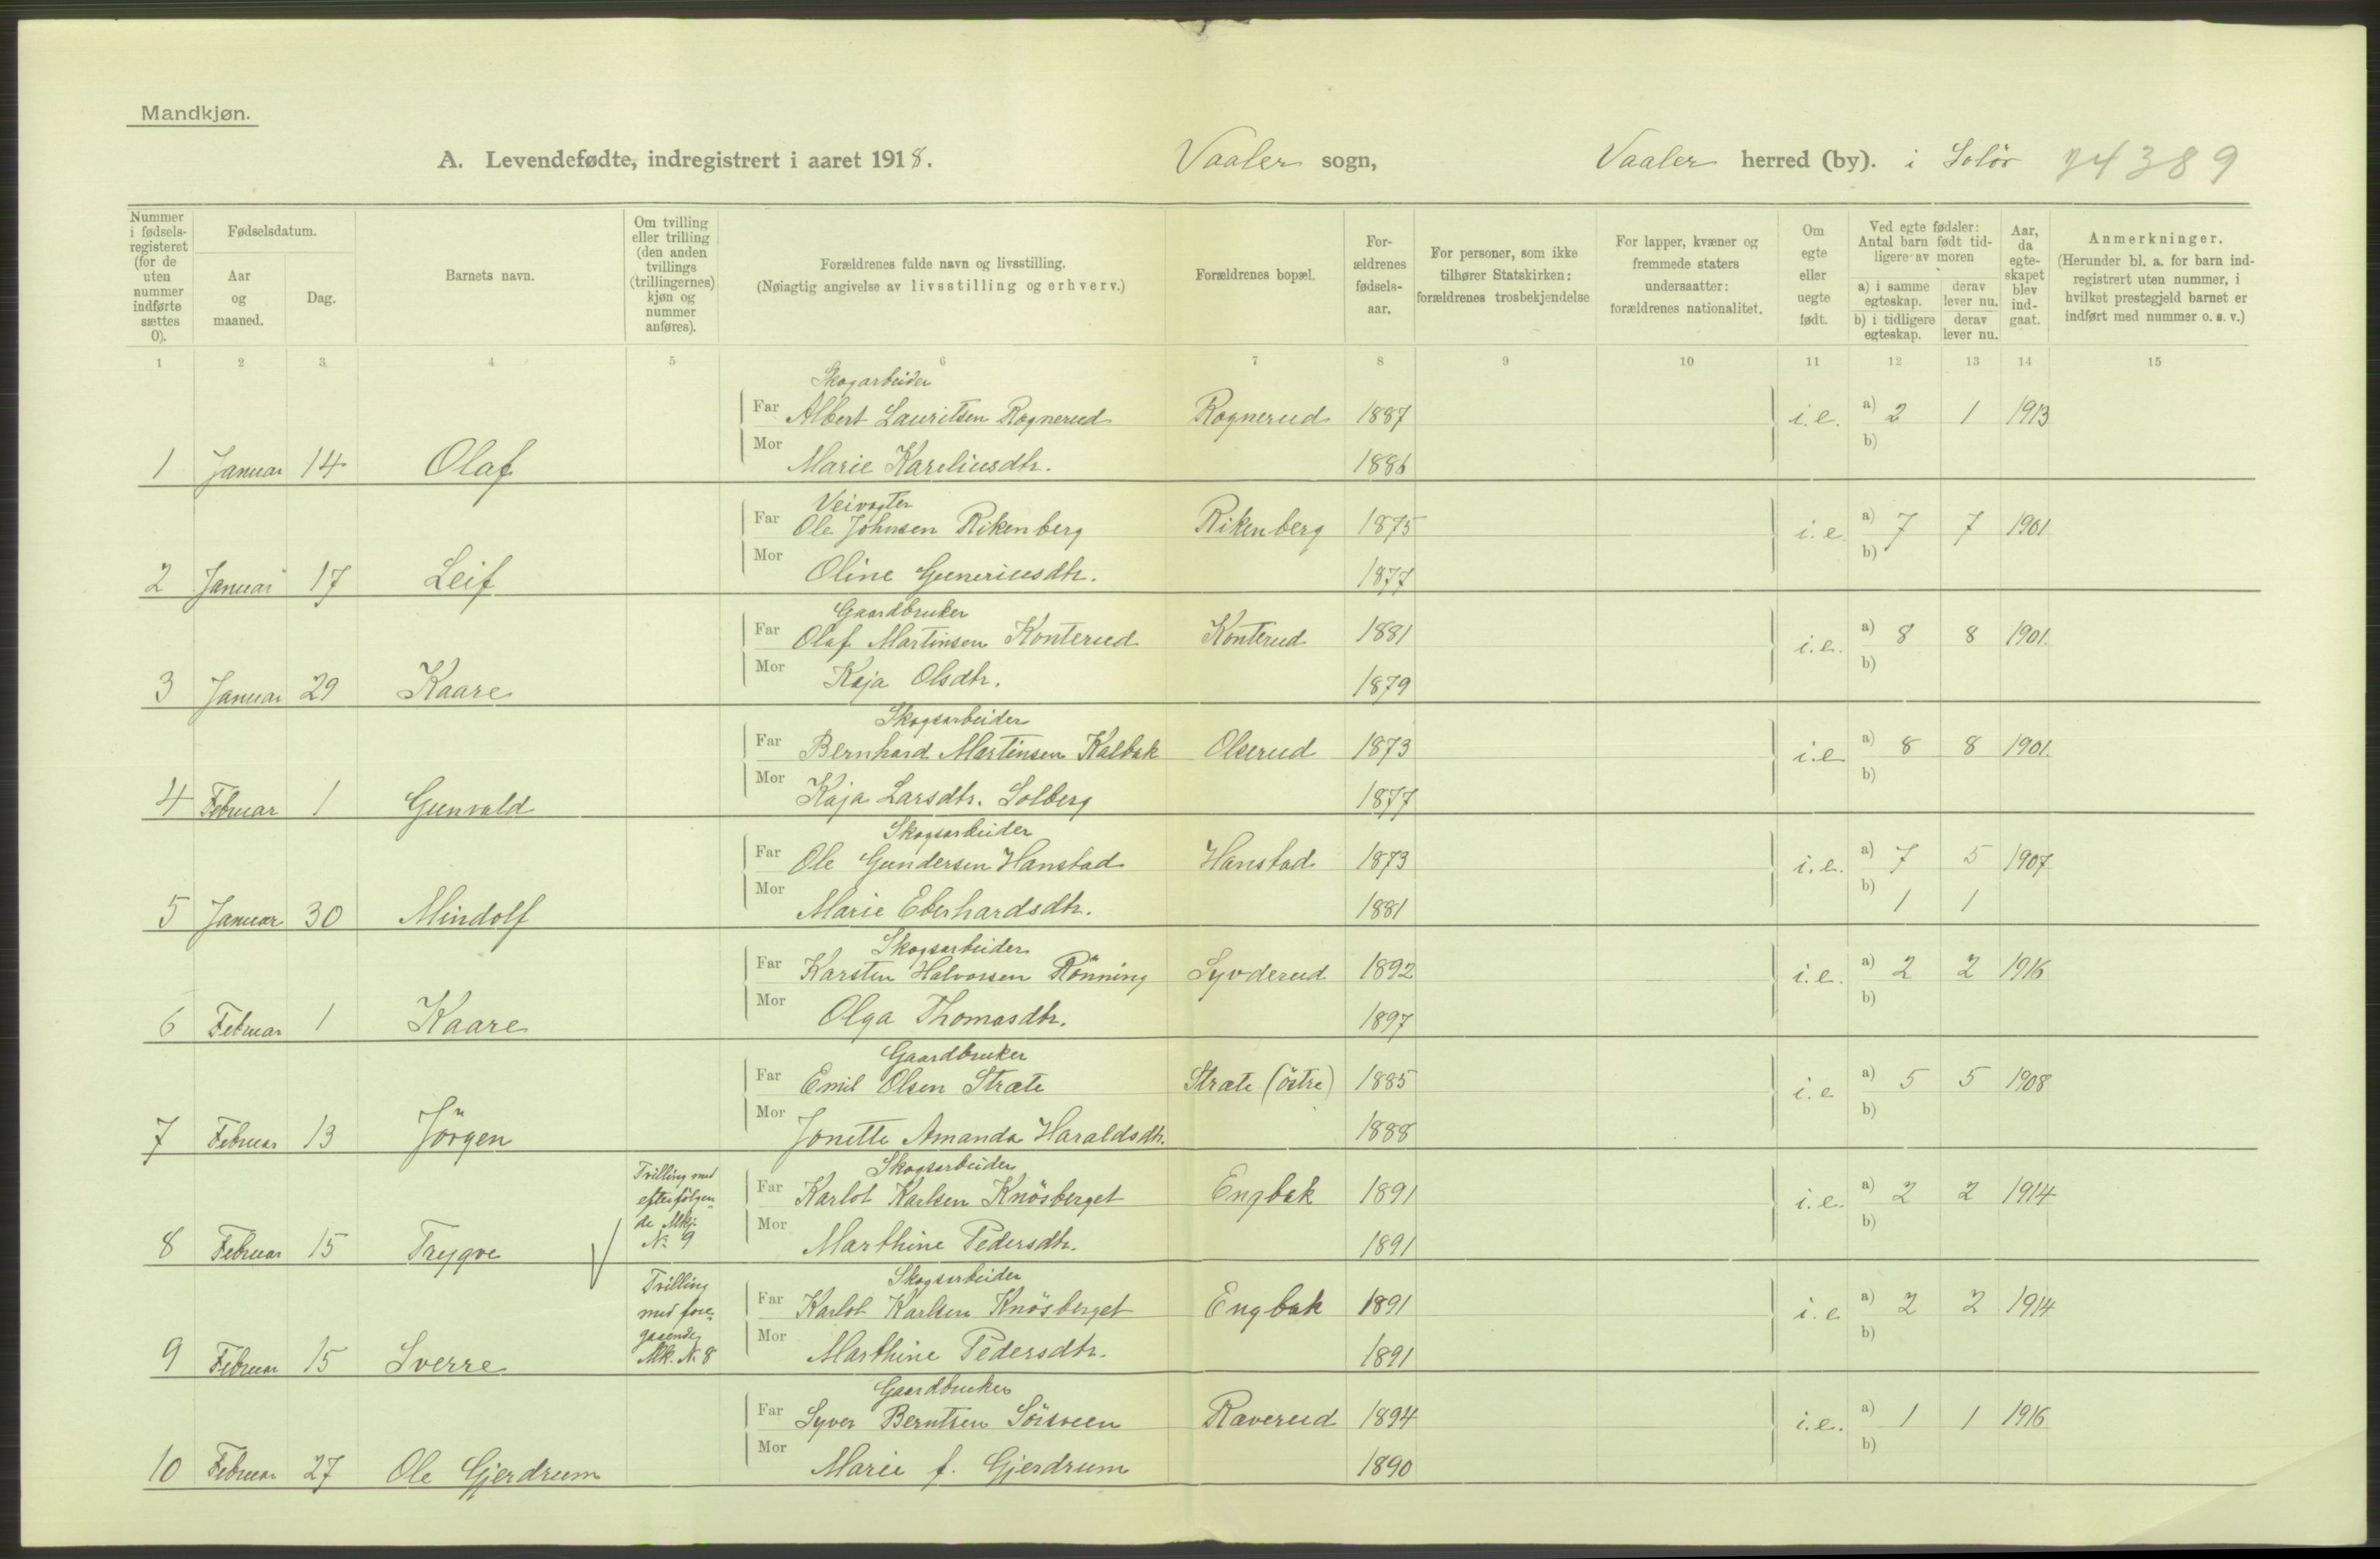 Mandkjøn.
A. Levendefødte, indregistrert i aaret 1918. Vaaler sogn, Vaaler herred (by). i Solör 74389
Nummer i fødselsregisteret (for de uten nummer indførte sættes 0).
Fødselsdatum.
Aar og maaned.
Dag.
Barnets navn.
Om tvilling eller trilling (den anden tvillings (trillingernes) kjøn og nummer anføres).
Forældrenes fulde navn og livsstilling.
(Nøiagtig angivelse av livsstilling og erhverv.)
Forældrenes bopæl.
Forældrenes fødselsaar.
For personer, som ikke tilhører Statskirken: forældrenes trosbekjendelse
For lapper, kvæner og fremmede staters undersaatter: forældrenes nationalitet.
Om egte eller uegte født.
Ved egte fødsler: Antal barn født tidligere av moren
a) i samme egteskap. derav lever nu.
b) i tidligere egteskap. derav lever nu.
Aar, da egteskapet blev indgaat.
Anmerkninger.
(Herunder bl. a. for barn indregistrert uten nummer, i hvilket prestegjeld barnet er indført med nummer o. s. v.)
1 2 3 4 5 6 7 8 9 10 11 12 13 14 15
Skogarbeider
Far Albert Lauritsen Rognerud Rognerud 1887 i.e. a) 2 1 1913
b)
1 Januar 14 Olaf Mor Marie Kareliusdtr. 1886
Veivogter
Far Ole Johnsen Rikenberg Rikenberg 1875 i.e. a) 7 7 1901
b)
2 Januar 17 Leif Mor Oline Guneriusdtr. 1877
Gaardbruker
Far Olaf Martinsen Konterud Konterud 1881 i.e. a) 8 8 1901.
b)
3 Januar 29 Kaare Mor Kaja Olsdtr. 1879
Skogsarbeider
Far Bernhard Martinsen Kalbak Olserud 1873 i.e a) 8 8 1901.
b)
4 Februar 1 Gunvald Mor Kaja Larsdtr. Solberg 1877
Skogsarbeider
Far Ole Gundersen Hanstad Hanstad 1873 i.e. a) 7 5 1907
b) 1 1
5 Januar 30 Mindolf Mor Marie Eberhardsdtr. 1881
Skogsarbeider
Far Karsten Halvorsen Rönning Syvderud 1892 i.e. a) 2 2 1916
b)
6 Februar 1 Kaare Mor Olga Thomasdtr. 1897
Gaardbruker
Far Emil Olsen Stræte Stræte (östre) 1885 i.e a) 5 5 1908
b)
7 Februar 13 Jörgen Mor Jonette Amanda Haraldsdtr. 1888
Skogsarbeider
Far Karlot Karlsen Knösberget Engbak 1891 i.e. a) 2 2 1914
b)
8 Februar 15 Trygve Tvilling med efterfölgende Mkj. No 9 Mor Marthine Pedersdtr. 1891
Skogsarbeider
Far Karlot Karlsen Knösberget Engbak 1891 i.e a) 2 2 1914
b)
9 Februar 15 Sverre Tvilling med foregaaende Mk. N. 8 Mor Marthine Pedersdtr. 1891
Gaardbruker
Far Syver Berntsen Sörsveen Raverud 1894 i.e. a) 1 1 1916
b)
10 Februar 27 Ole Gjerdrum Mor Marie f. Gjerdrum 1890